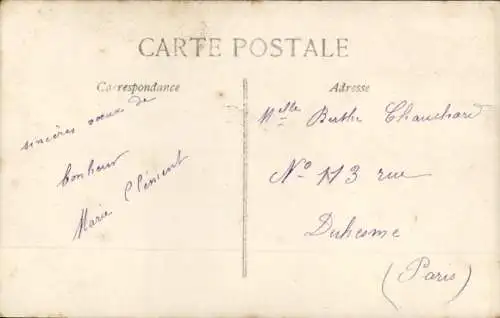 CARTE POSTALE
Correspondance
sincères vœux de
bonheur
Marie Clément
Adresse
Melle Berthe Chauchard
No 113 rue
Duhesme
(Paris)